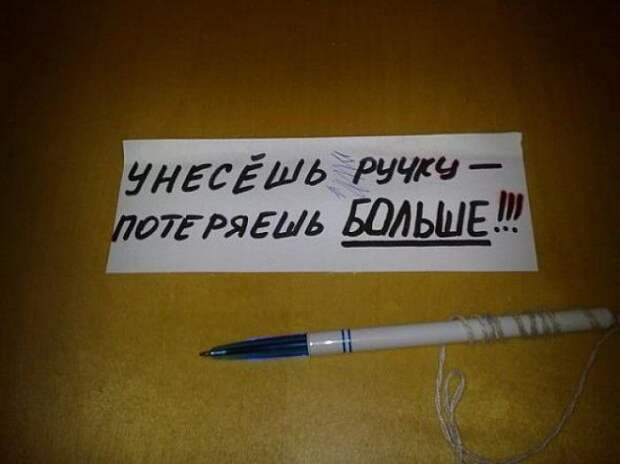 УНЕСЁШЬ РУЧКУ —
ПОТЕРЯЕШЬ БОЛЬШЕ!!!